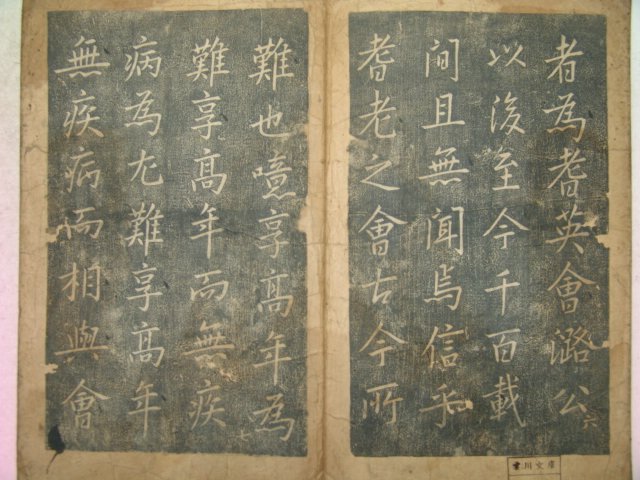 者為耆英會潞公
以後至今千百載
间且無聞焉信乎
耆老之會古今所
難也噫享高年為
難享高年而無疾
病為尤難享高年
無疾病而相與會